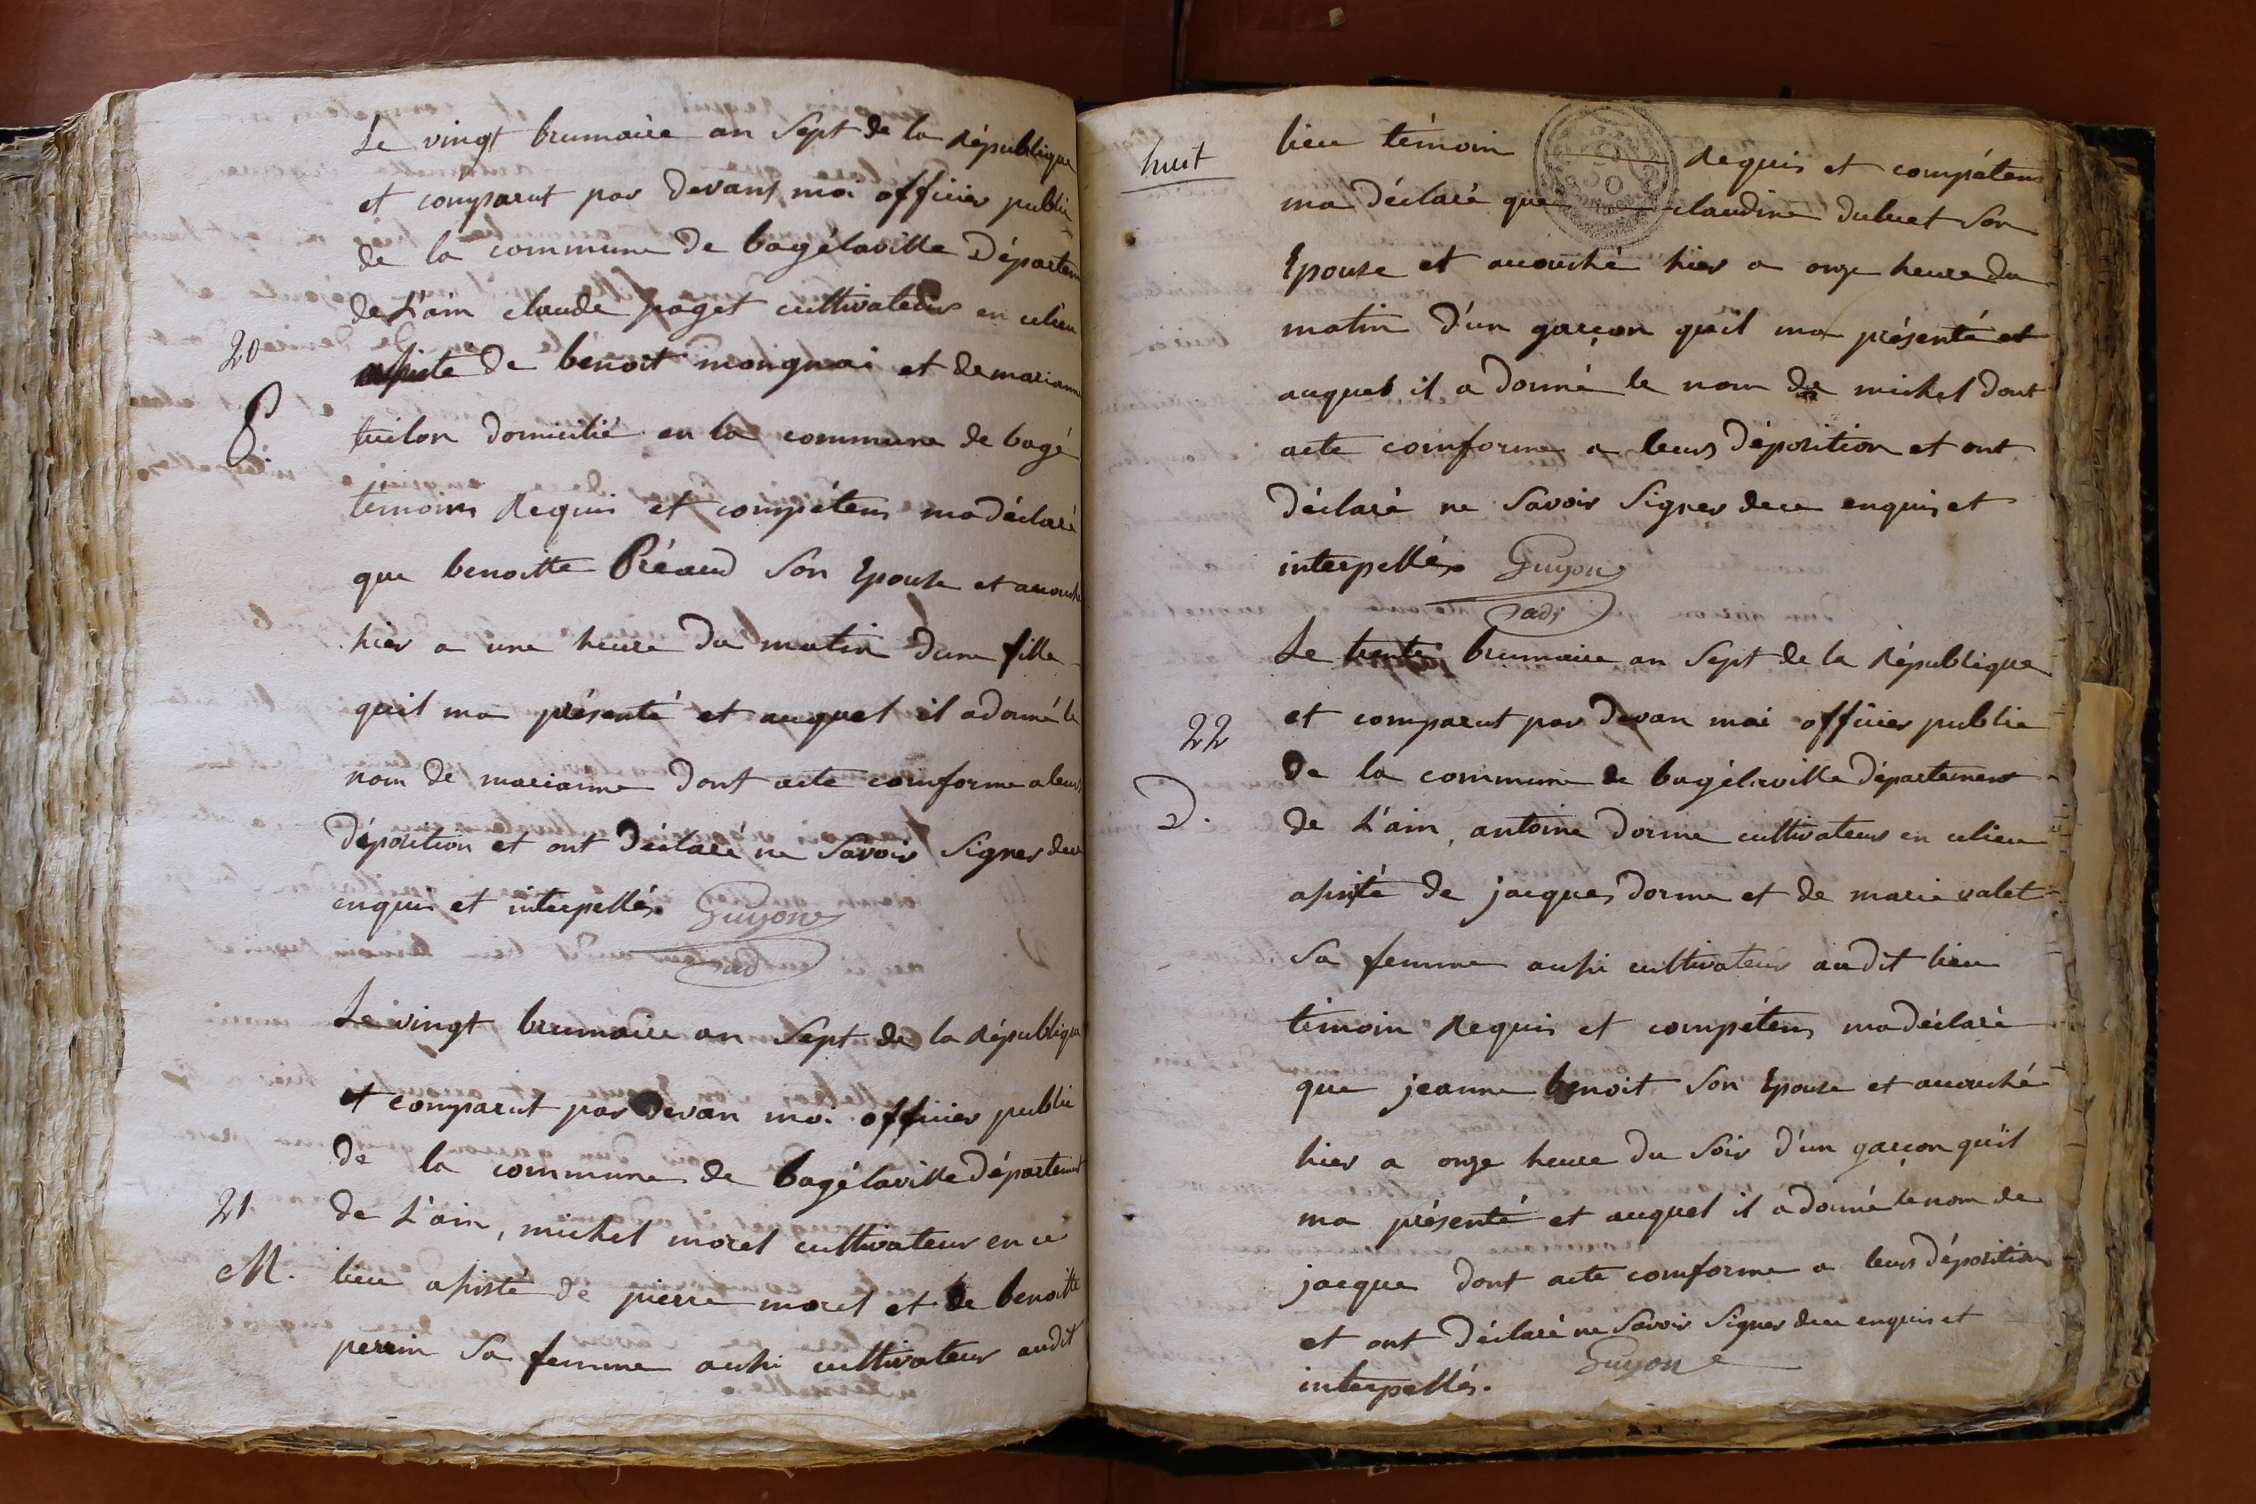 Le vingt brumaire an Sept de la République
et comparut par devant moi officier public
de la commune de bagélaville Départem
de L'ain claude paget cultivateur en celieu
20
assisté de benoit monguai et de marianne
P
tuilon domicilié en la commune de bagé
témoins Requis et compétens ma déclaré
que benoitte Préaud Son Epouse et accouché
hier a une heure du matin dune fille
quil ma présenté et auquel il adonné le
nom de marianne dont acte comforme a leurs
déposition et ont Déclaré ne Savoir Signer dece
enquis et interpellés. Guyon
adj
Le vingt brumaire an Sept de la République
et comparut par devan moi officier public
de la commune de bagélaville département
21
de L'ain, michel morel cultivateur en ce
M.
lieu assisté de pierre morel et de benoitte
perrin Sa femme aussi cultivateur audit
huit
lieu témoin Requis et compétens
ma déclaré que claudine dubuet Son
Epouse et accouché hier a onze heure du
matin d'un garçon quil ma présenté et
auquel il a donné le nom de michel dont
acte comforme a leurs déposition et ont
déclaré ne Savoir Signer dece enquis et
interpellés. Guyon
adj
Le trente brumaire an Sept de la République
et comparut par devan moi officier public
22
de la commune de bagélaville département
D.
de L'ain, antoine dorme cultivateur en celieu
assisté de jacques dorme et de marie valet
Sa femme aussi cultivateur audit lieu
témoin Requis et compétens ma déclaré
que jeanne benoit Son Epouse et accouché
hier a onze heure du Soir d'un garçon qu'il
ma présenté et auquel il a donné le nom de
jacque dont acte comforme a leurs déposition
et ont déclaré ne Savoir Signer dece enquis et
interpellés. Guyon